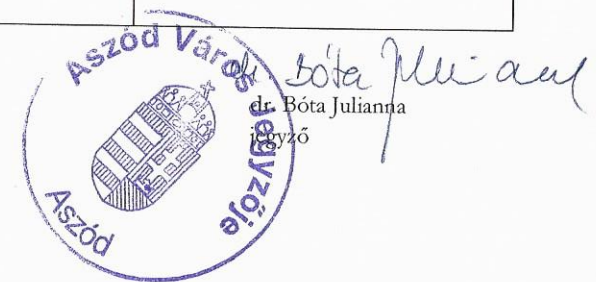 Aszód Város Jegyzője
Aszód
dr. Bóta Julianna
dr. Bóta Julianna
jegyző